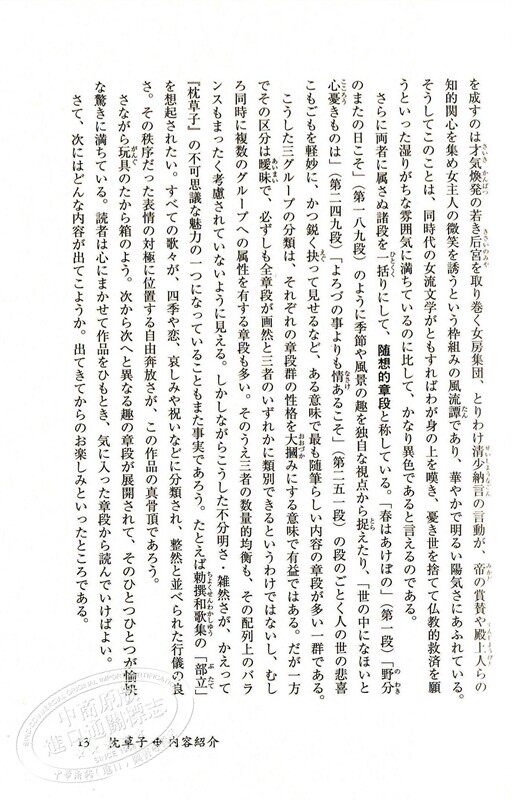 を成すのは才気煥発の若き后宮を取り巻く女房集団、とりわけ清少納言の言動が、帝の賞賛や殿上人らの
知的関心を集め女主人の微笑を誘うという枠組みの風流譚であり、華やかで明るい陽気さにあふれている。
そうしてこのことは、同時代の女流文学がともすればわが身の上を嘆き、憂き世を捨てて仏教的救済を願
うといった湿りがちな雰囲気に満ちているのに比して、かなり異色であると言えるのである。
さらに両者に属さぬ諸段を一括りにして、随想的章段と称している。「春はあけぼの」（第一段）「野分
のまたの日こそ」（第一八九段）のように季節や風景の趣を独自な視点から捉えたり、「世の中になほいと
心憂きものは」（第二四九段）「よろづの事よりも情あるこそ」（第二五一段）の段のごとく人の世の悲喜
こもごもを軽妙に、かつ鋭く抉って見せるなど、ある意味で最も随筆らしい内容の章段が多い一群である。
こうした三グループの分類は、それぞれの章段群の性格を大摑みにする意味で有益ではある。だが一方
でその区分は曖昧で、必ずしも全章段が画然と三者のいずれかに類別できるというわけではないし、むし
ろ同時に複数のグループへの属性を有する章段も多い。そのうえ三者の数量的均衡も、その配列上のバラ
ンスもまったく考慮されていないように見える。しかしながらこうした不分明さ・雑然さが、かえって
『枕草子』の不可思議な魅力の一つになっていることもまた事実であろう。たとえば勅撰和歌集の「部立」
を想起されたい。すべての歌々が、四季や恋、哀しみや祝いなどに分類され、整然と並べられた行儀の良
さ。その秩序だった表情の対極に位置する自由奔放さが、この作品の真骨頂であろう。
さながら玩具のたから箱のよう。次から次へと異なる趣の章段が展開されて、そのひとつひとつが愉悦
な驚きに満ちている。読者は心にまかせて作品をひもとき、気に入った章段から読んでいけばよい。
さて、次にはどんな内容が出てこようか。出てきてからのお楽しみといったところである。
13 枕草子 ✣ 内容紹介
中商原版
進口通關標志